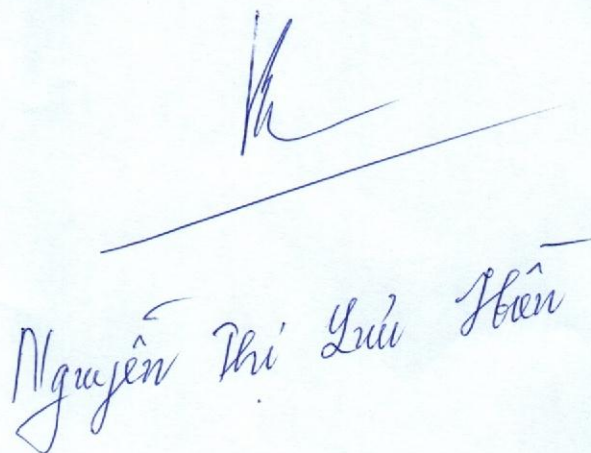 Nguyễn Thị Lưu Hoàn